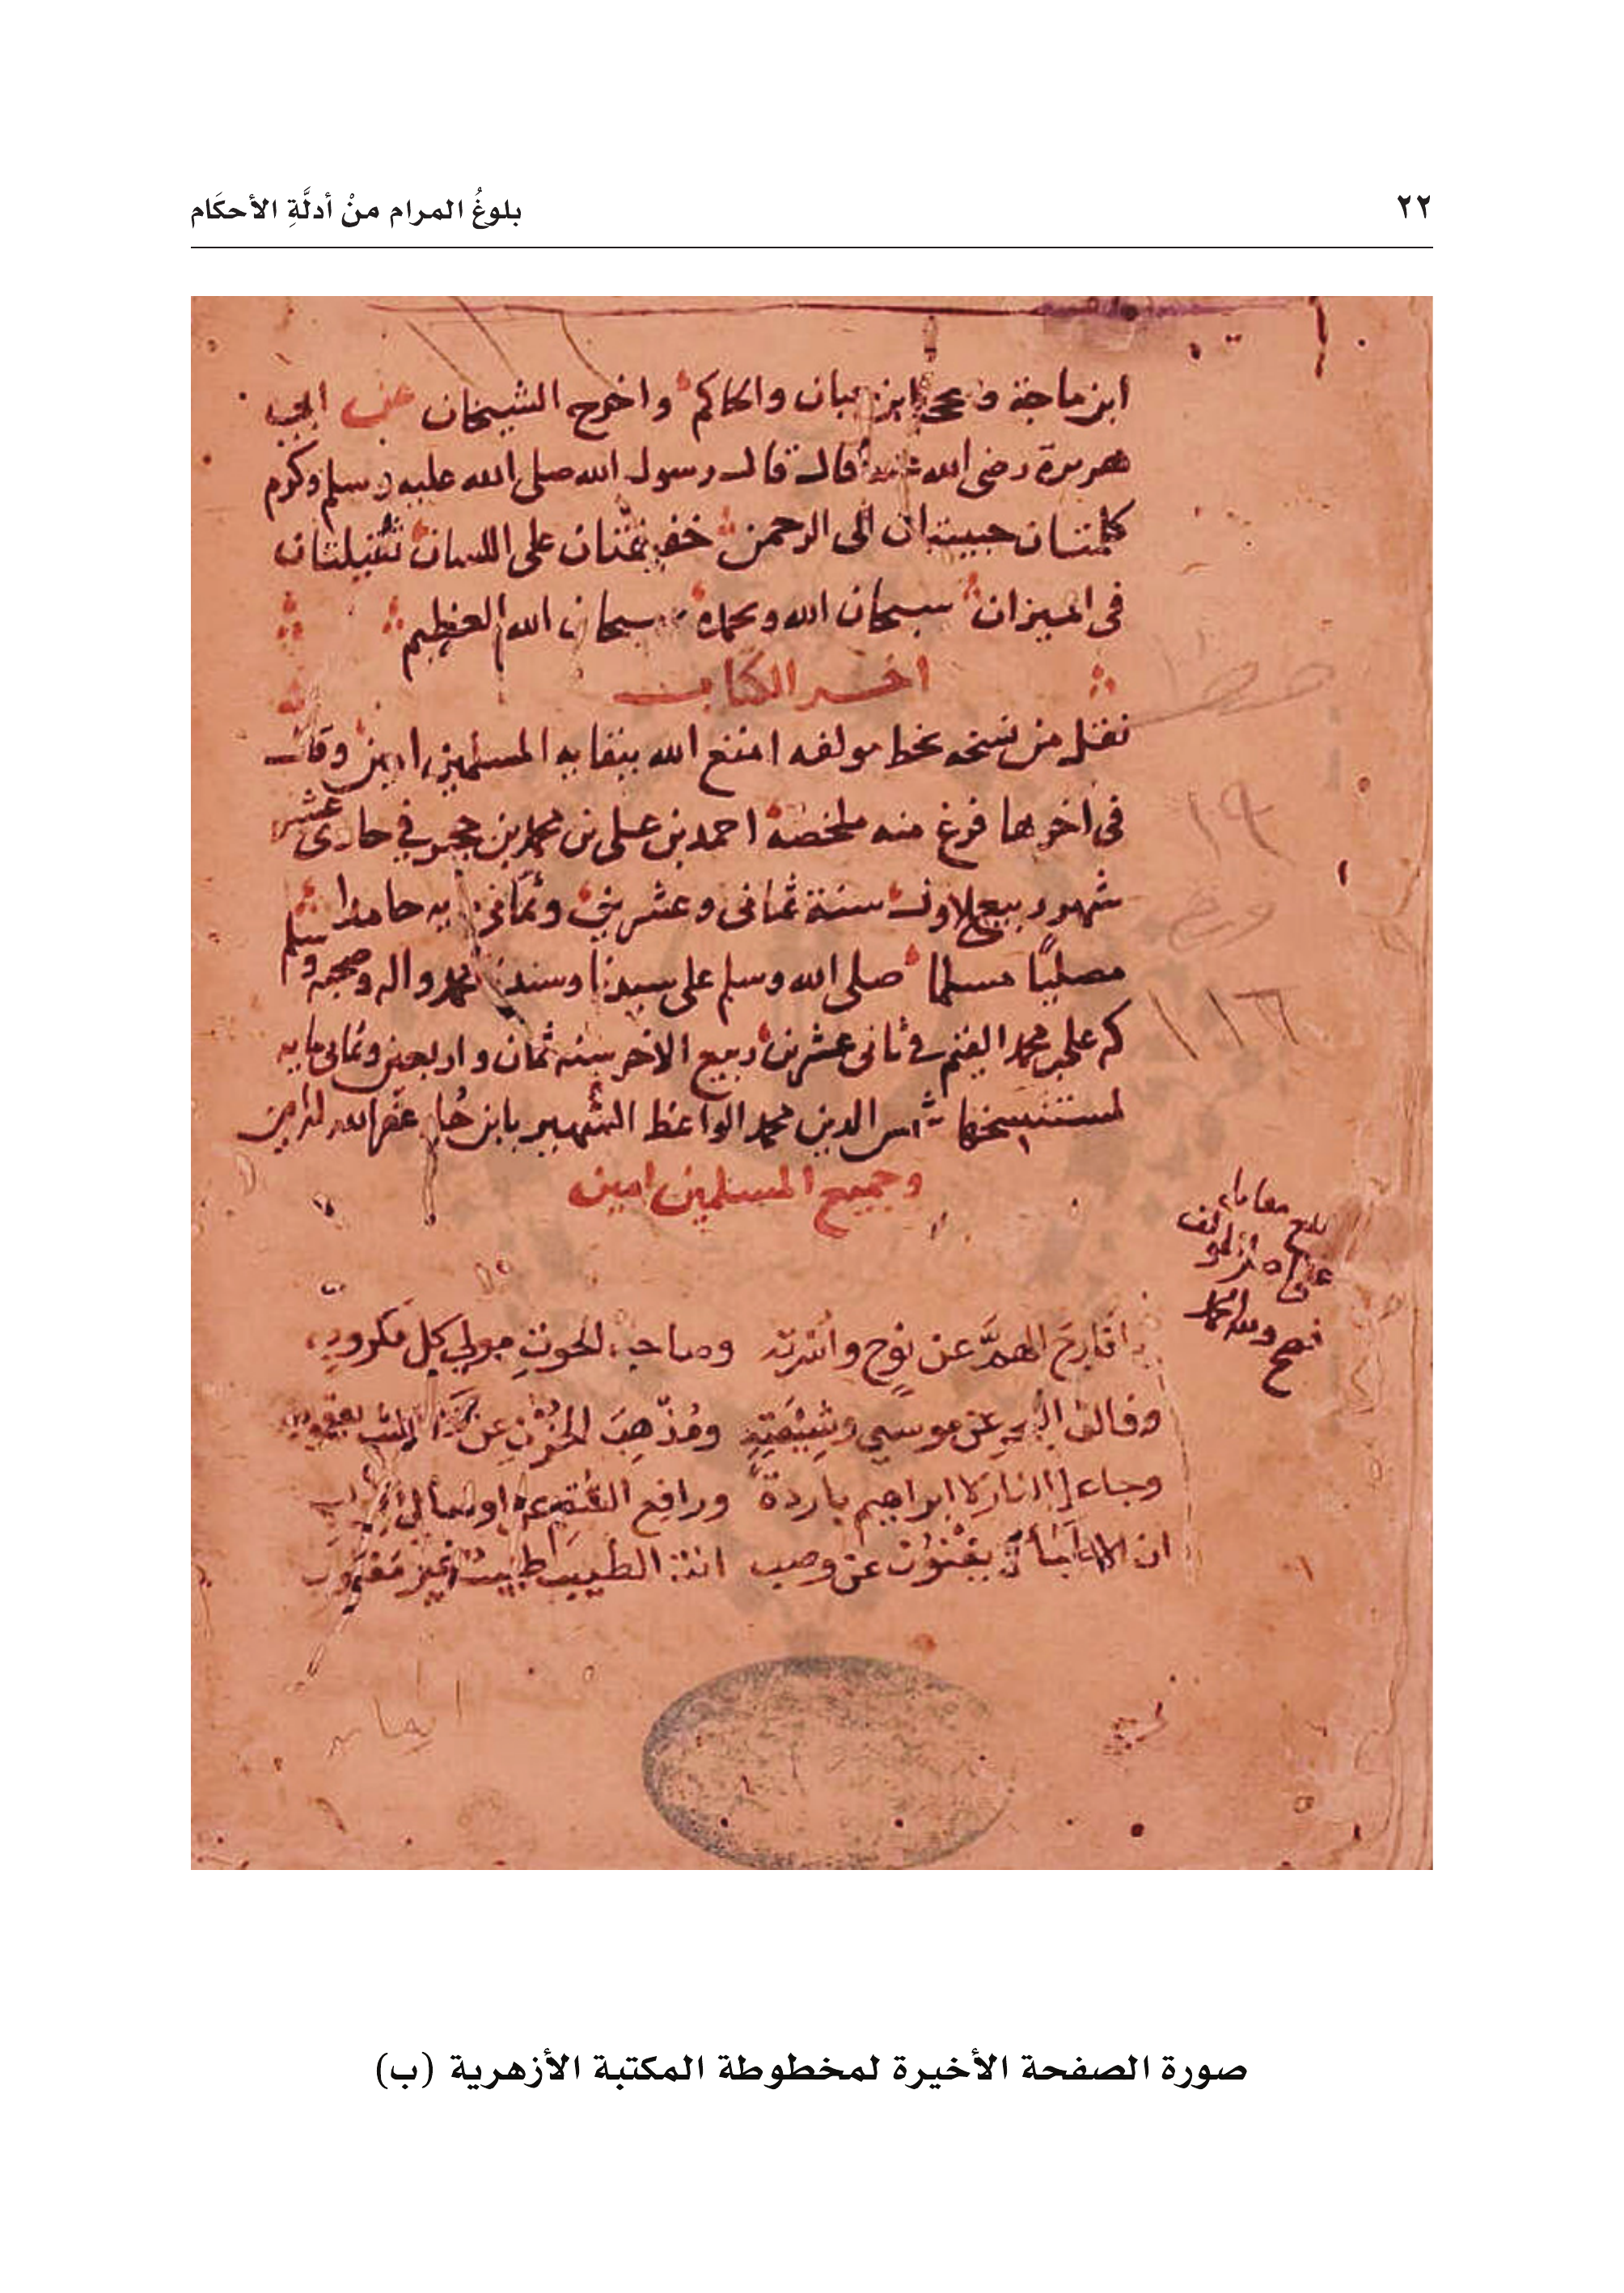 ٢٢
بلوغُ المرام منْ أدلَّةِ الأحكَام
ابن ماجة وصححه ابن حبان والحاكم واخرج الشيخان عن ابي
هريرة رضى الله عنه قال قال رسول الله صلى الله عليه وسلم وكرم
كلمتان حبيبتان الى الرحمن خفيفتان على اللسان ثقيلتان
فى الميزان سبحان الله وبحمده سبحان الله العظيم
اخر الكتاب
نقل من نسخه بخط مولفه امتع الله ببقايه المسلمين امين وقال
فى اخرها فرغ منه ملخصه احمد بن على بن محمد بن حجر في حادى عشر
شهر ربيع الاول سنة ثمانى وعشرين وثمانى مايه حامدا
مصليًا مسلما صلى الله وسلم على سيدنا وسندنا محمد واله وصحبه وسلم
على محمد فى ثانى عشرين ربيع الاخر سنه ثمان واربعين وثمانى مايه
لمستنسخها شمس الدين محمد الواعظ الشهير بابن غفر الله
وجميع المسلمين امين
بلغ مقابلة
على اصل المولف
فصح ولله الحمد
يا فارج الهمَّ عن نوح وصاحب الحوت مولي كل مكروب
وفالق البحر عن موسي وشيعته ومُذْهِبَ الحزن عن يعقوب
وجاعل النار لابراهيم باردة ورافع السقم من اوصال ايوب
ان الاطباء لا يغنون عن وصب انت الطبيب طبيب غير مغلوب
١٩
١١٦
صورة الصفحة الأخيرة لمخطوطة المكتبة الأزهرية (ب)